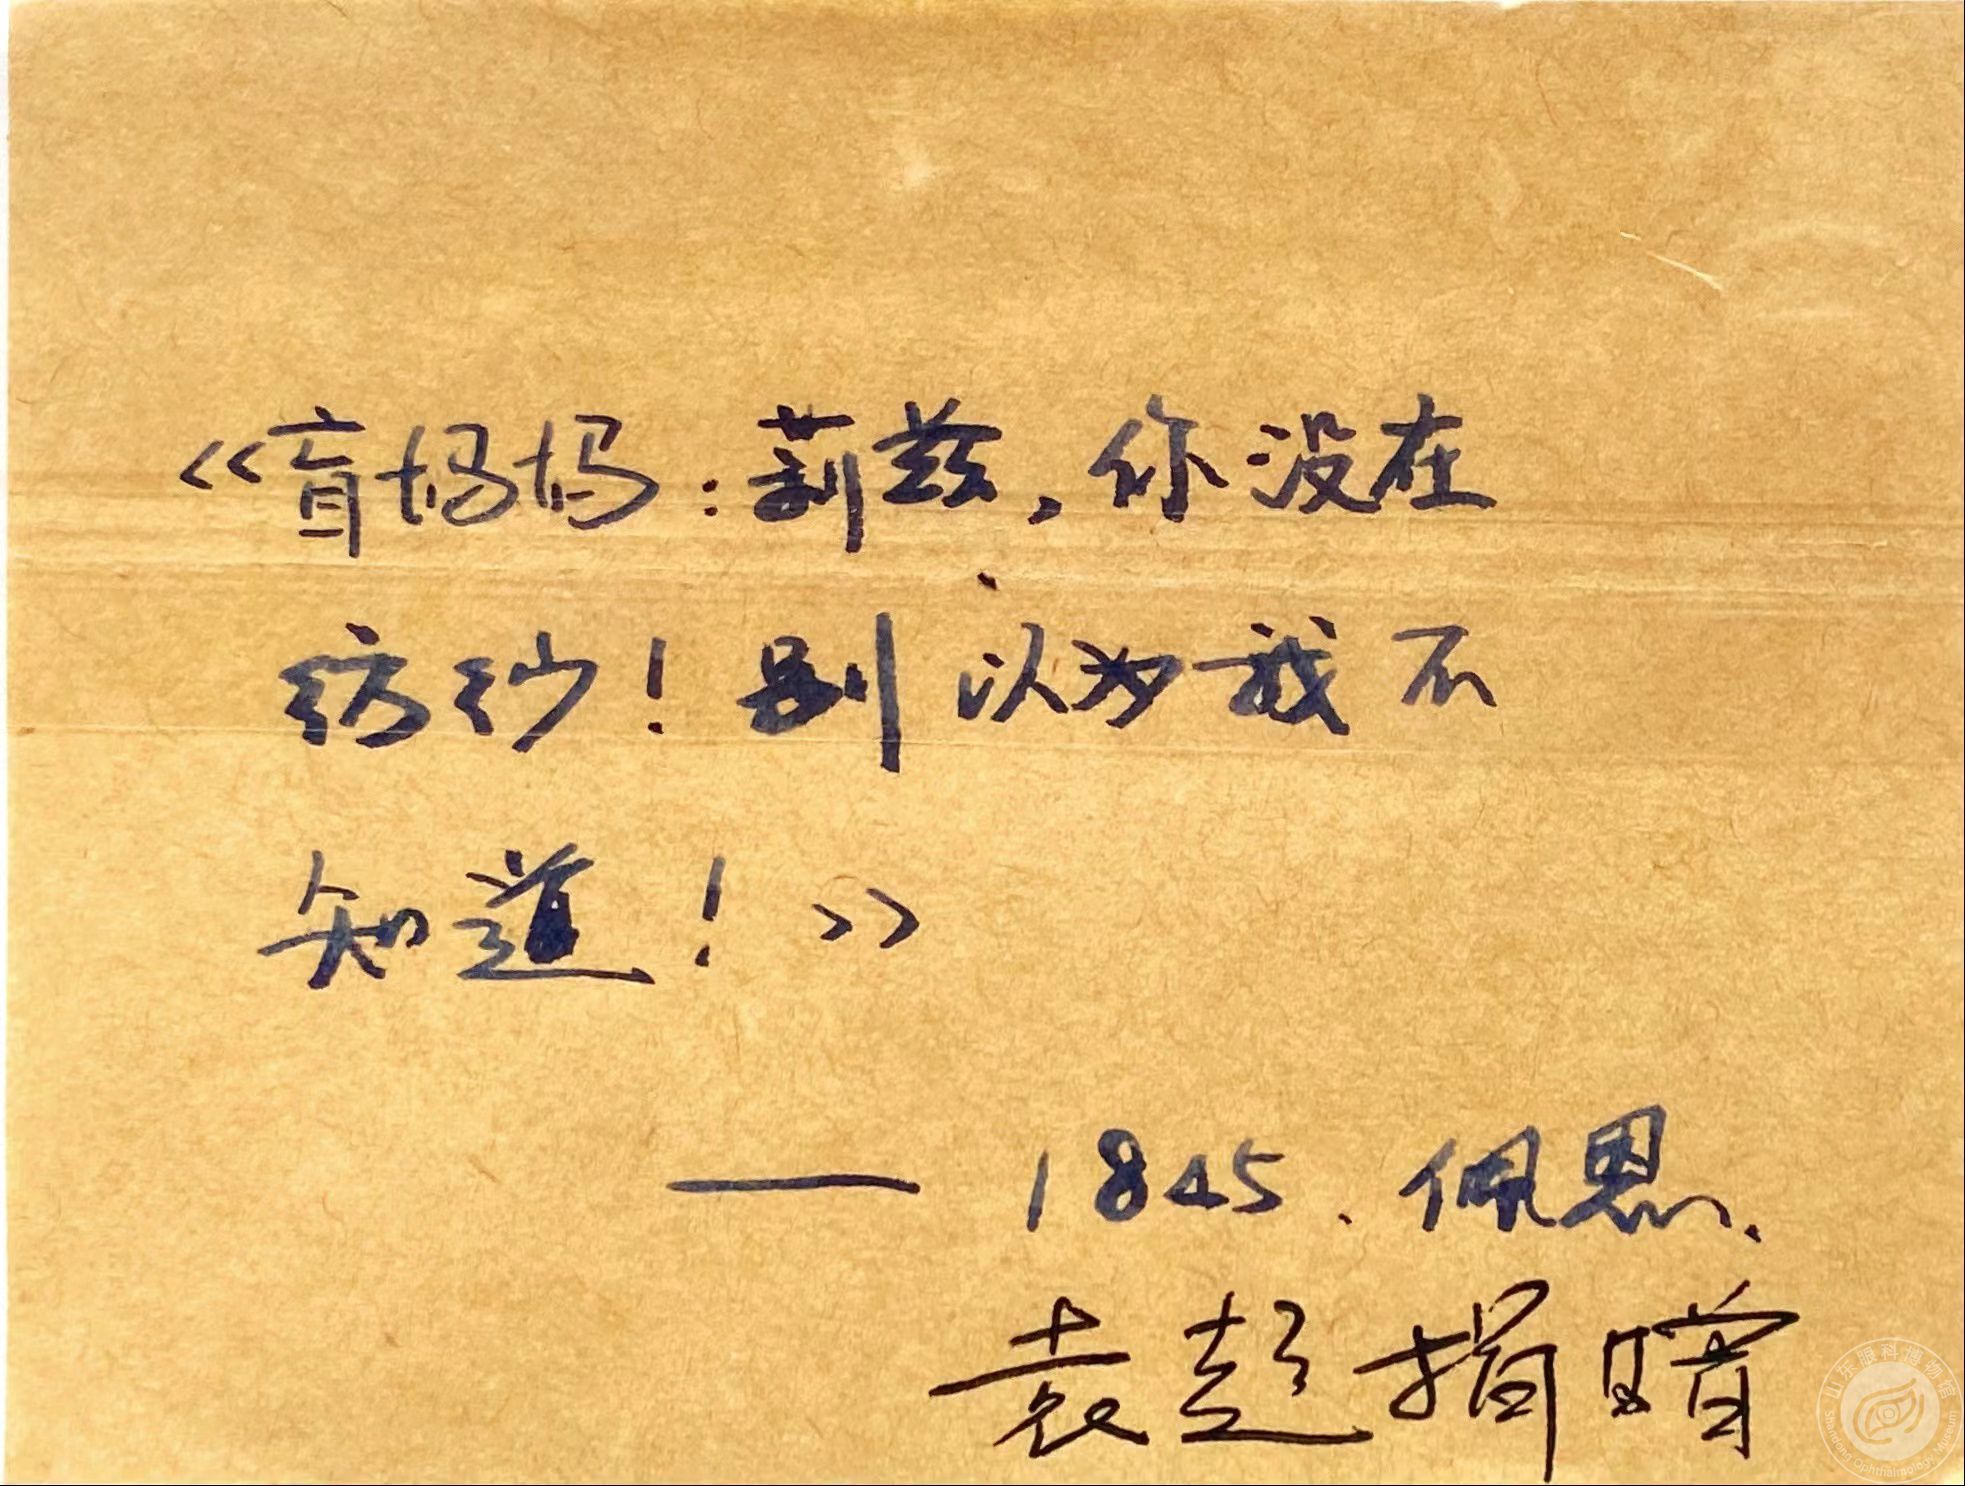 《盲妈妈：莉兹，你没在
纺纱！别以为我不
知道！》
—— 1845. 佩恩.
袁超捐赠
山东眼科博物馆
Shandong Ophthalmology Museum